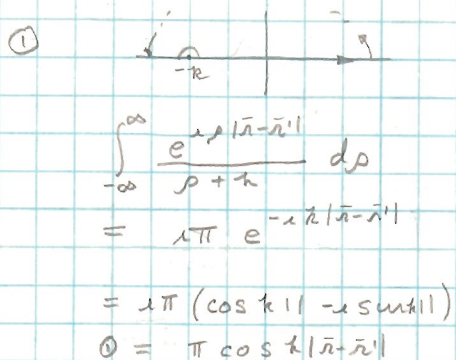 ①
-k
∫_{-∞}^{∞} e^{ip|r̄-r̄'|} / (p + k) dp
= iπ e^{-ik|r̄-r̄'|}
= iπ (cos k|| - i sin k||)
① = π cos k|r̄-r̄'|